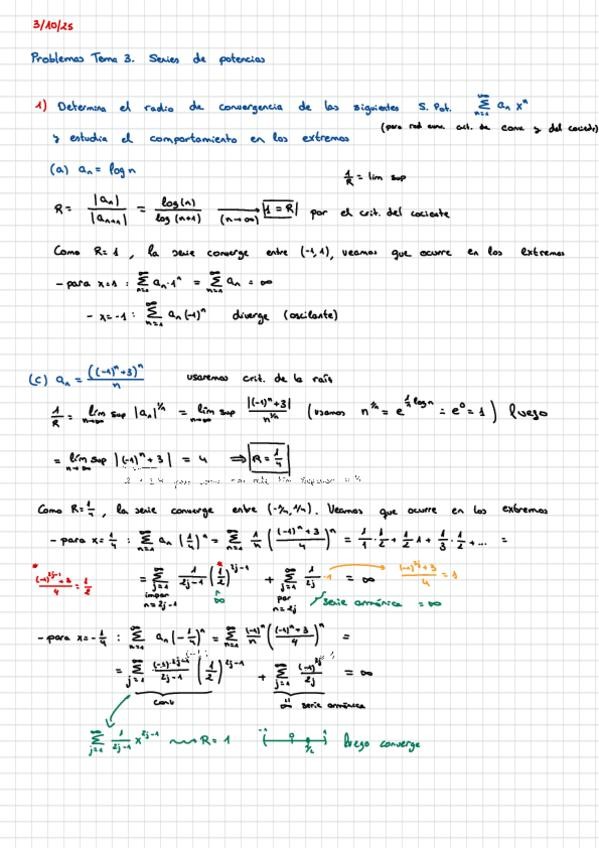 3/10/25
Problemas Tema 3. Series de potencias
1) Determina el radio de convergencia de las siguientes S. Pot. ∑_{n=1}^{∞} a_n x^n
(para rad conv. crit. de conv y del cociente)
y estudia el comportamiento en los extremos
(a) a_n = log n
1/R = lim sup
R = |a_n|/|a_{n+1}| = log(n)/log(n+1) → (n→∞) 1 = R por el crit. del cociente
Como R=1, la serie converge entre (-1,1), veamos que ocurre en los extremos
- para x=1 : ∑_{n=1}^{∞} a_n·1^n = ∑_{n=1}^{∞} a_n = ∞
- x=-1 : ∑_{n=1}^{∞} a_n(-1)^n diverge (oscilante)
(c) a_n = ((-1)^n+3)^n / n usaremos crit. de la raíz
1/R = lim sup_{n→∞} |a_n|^{1/n} = lim sup_{n→∞} |(-1)^n+3| / n^{1/n} (usamos n^{1/n} = e^{1/n log n} = e^0 = 1) luego
= lim sup_{n→∞} |(-1)^n+3| = 4 ⇒ R = 1/4
Como R=1/4, la serie converge entre (-1/4, 1/4). Veamos que ocurre en los extremos
- para x=1/4 : ∑_{n=1}^{∞} a_n (1/4)^n = ∑_{n=1}^{∞} 1/n (((-1)^n+3)/4)^n = 1/1 · 1/2 + 1/2 1 + 1/3 · 1/2 + ... =
((-1)^{2j-1}+3)/4 = 1/2
= ∑_{j=1}^{∞} 1/(2j-1) (1/2)^{2j-1} + ∑_{j=1}^{∞} 1/2j · 1 = ∞
((-1)^{2j}+3)/4 = 1
impar n=2j-1 ∞ par n=2j serie armónica = ∞
- para x=-1/4 : ∑_{n=1}^{∞} a_n (-1/4)^n = ∑_{n=1}^{∞} (-1)^n/n (((-1)^n+3)/4)^n =
= ∑_{j=1}^{∞} (-1)^{2j-1}/(2j-1) (1/2)^{2j-1} + ∑_{j=1}^{∞} (-1)^{2j}/2j = ∞
conv ∞ serie armónica
∑_{j=1}^{∞} 1/(2j-1) x^{2j-1} ⇝ R=1 -1 0 1/2 1 luego converge